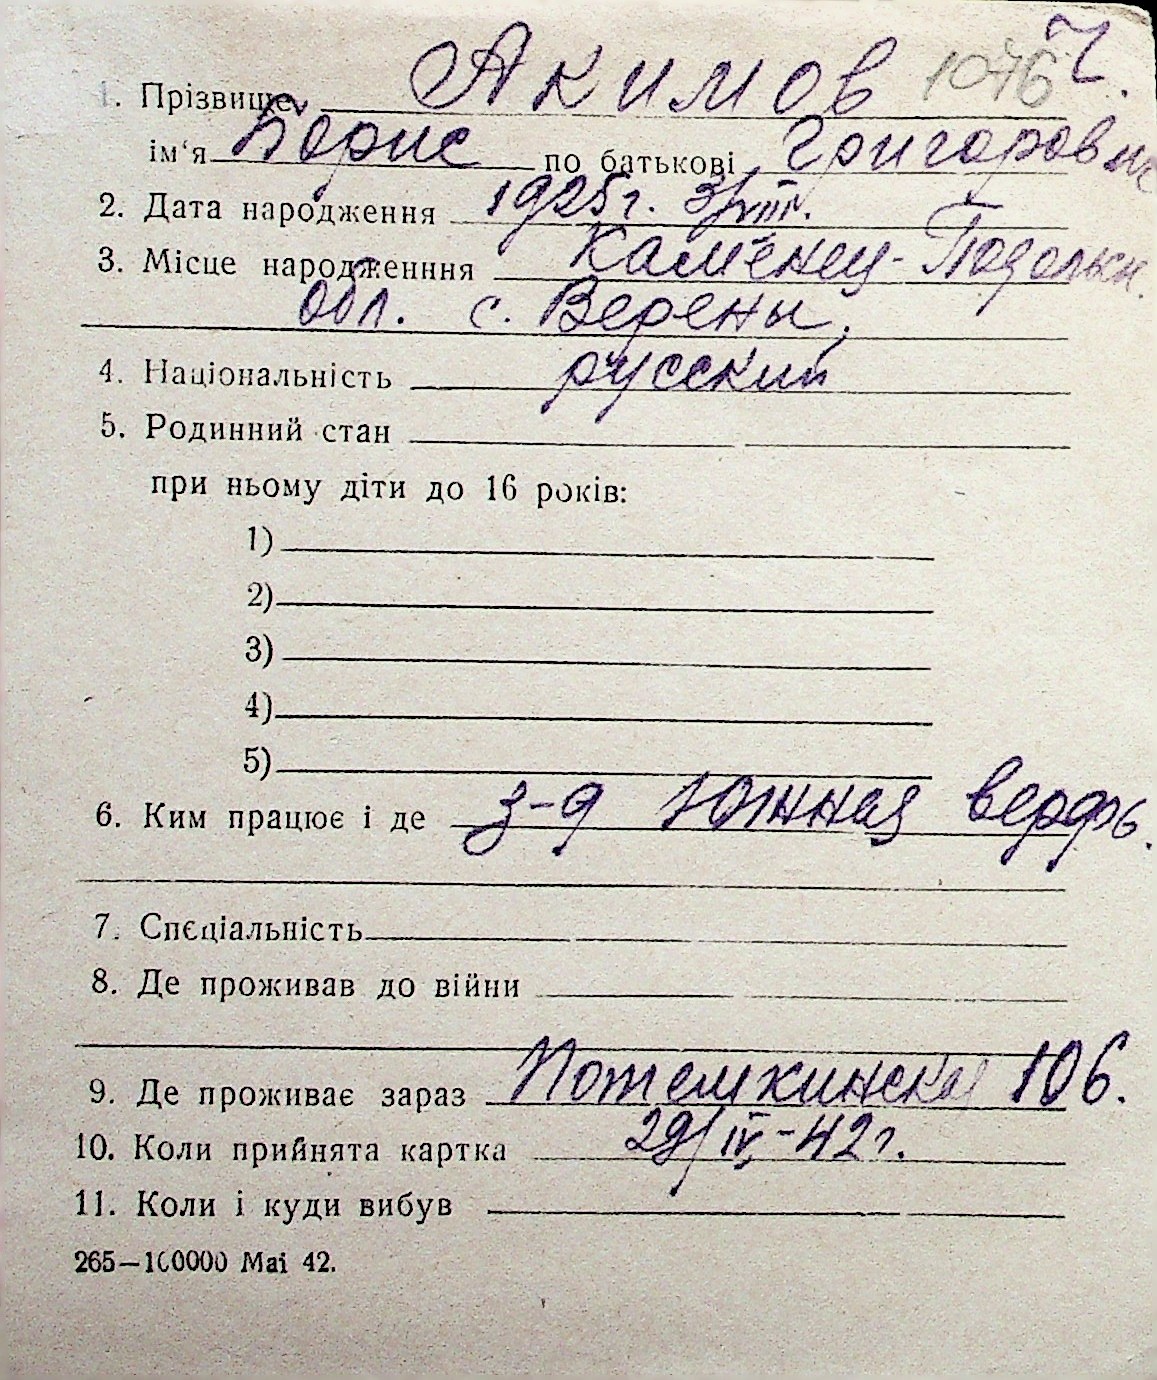 1. Прізвище Акимов 1076 Ч.
ім'я Борис по батькові Григорович
2. Дата народження 1925г. 3/VIII.
3. Місце народженння Каменец-Подольск.
обл. с. Верены.
4. Національність русский
5. Родинний стан
при ньому діти до 16 років:
1)
2)
3)
4)
5)
6. Ким працює і де з-д Южная верфь.
7. Спєціальність
8. Де проживав до війни
9. Де проживає зараз Потемкинская 106.
10. Коли прийнята картка 29/IV-42г.
11. Коли і куди вибув
265—100000 Mai 42.